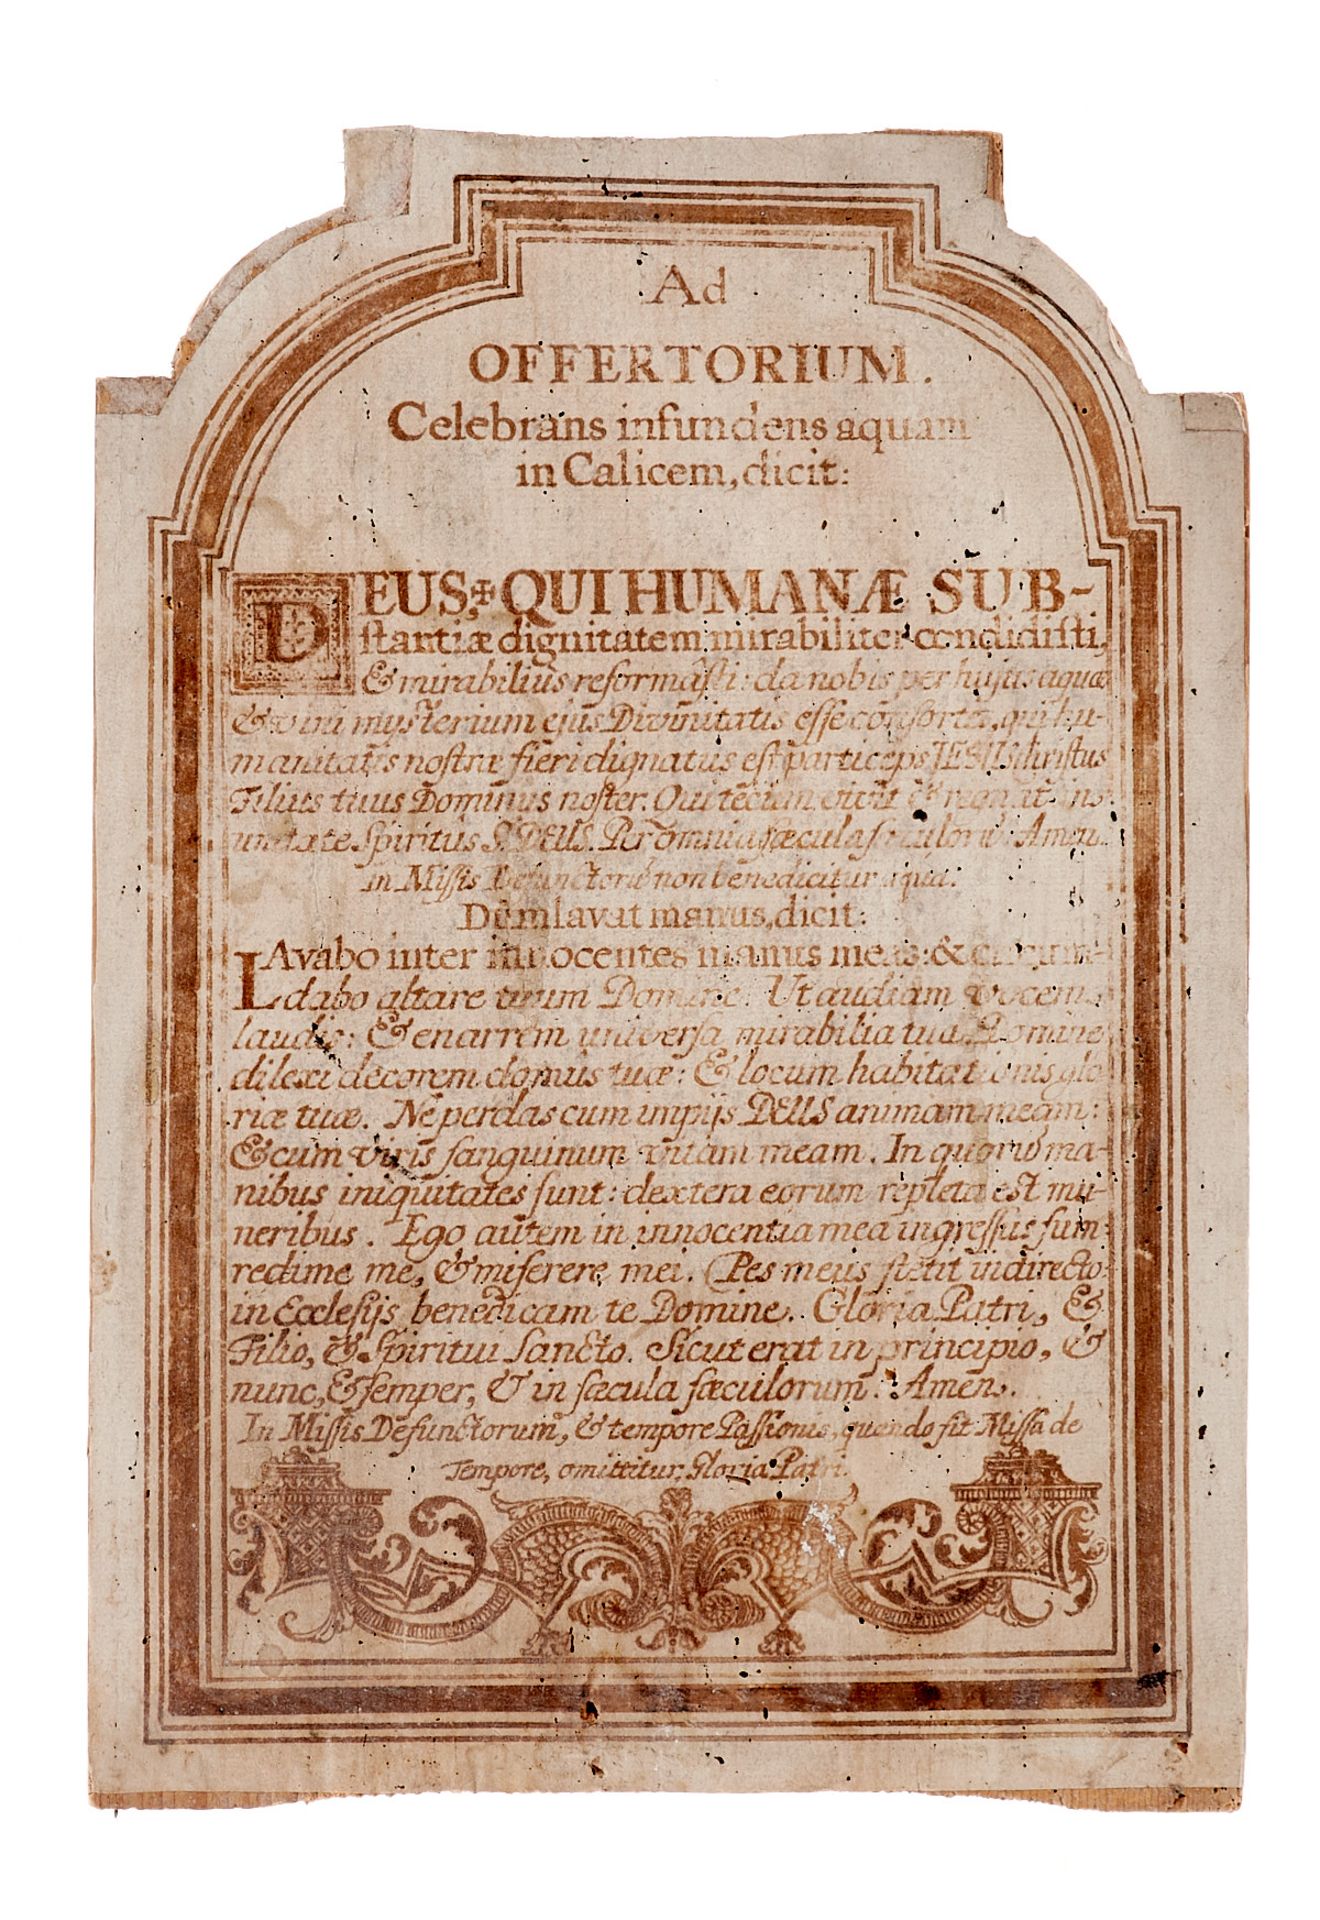 Ad
OFFERTORIUM.
Celebrans infundens aquam
in Calicem, dicit:
DEUS,✠QUI HUMANÆ SUB-
stantiæ dignitatem mirabiliter condidisti,
& mirabilius reformasti: da nobis per hujus aquæ
& vini mysterium ejus Divinitatis esse consortes, qui hu-
manitatis nostræ fieri dignatus est particeps JESUS Christus
Filius tuus Dominus noster. Qui tecum vivit & regnat in
unitate Spiritus S. DEUS. Per omnia sæcula sæculorũ. Amen.
in Missis Defunctorũ non benedicitur aqua.
Dum lavat manus, dicit:
LAvabo inter innocentes manus meas: & circum-
dabo altare tuum Domine. Ut audiam vocem
laudis: & enarrem universa mirabilia tua. Domine
dilexi decorem domus tuæ: & locum habitationis glo-
riæ tuæ. Ne perdas cum impijs DEUS animam meam:
& cum viris sanguinum vitam meam. In quorũ ma-
nibus iniquitates sunt: dextera eorum repleta est mu-
neribus. Ego autem in innocentia mea ingressus sum:
redime me, & miserere mei. Pes meus stetit in directo:
in Ecclesijs benedicam te Domine. Gloria Patri, &
Filio, & Spiritui Sancto. Sicut erat in principio, &
nunc, & semper, & in sæcula sæculorum. Amen.
In Missis Defunctorum, & tempore Passionis, quando fit Missa de
Tempore, omittitur, Gloria Patri.